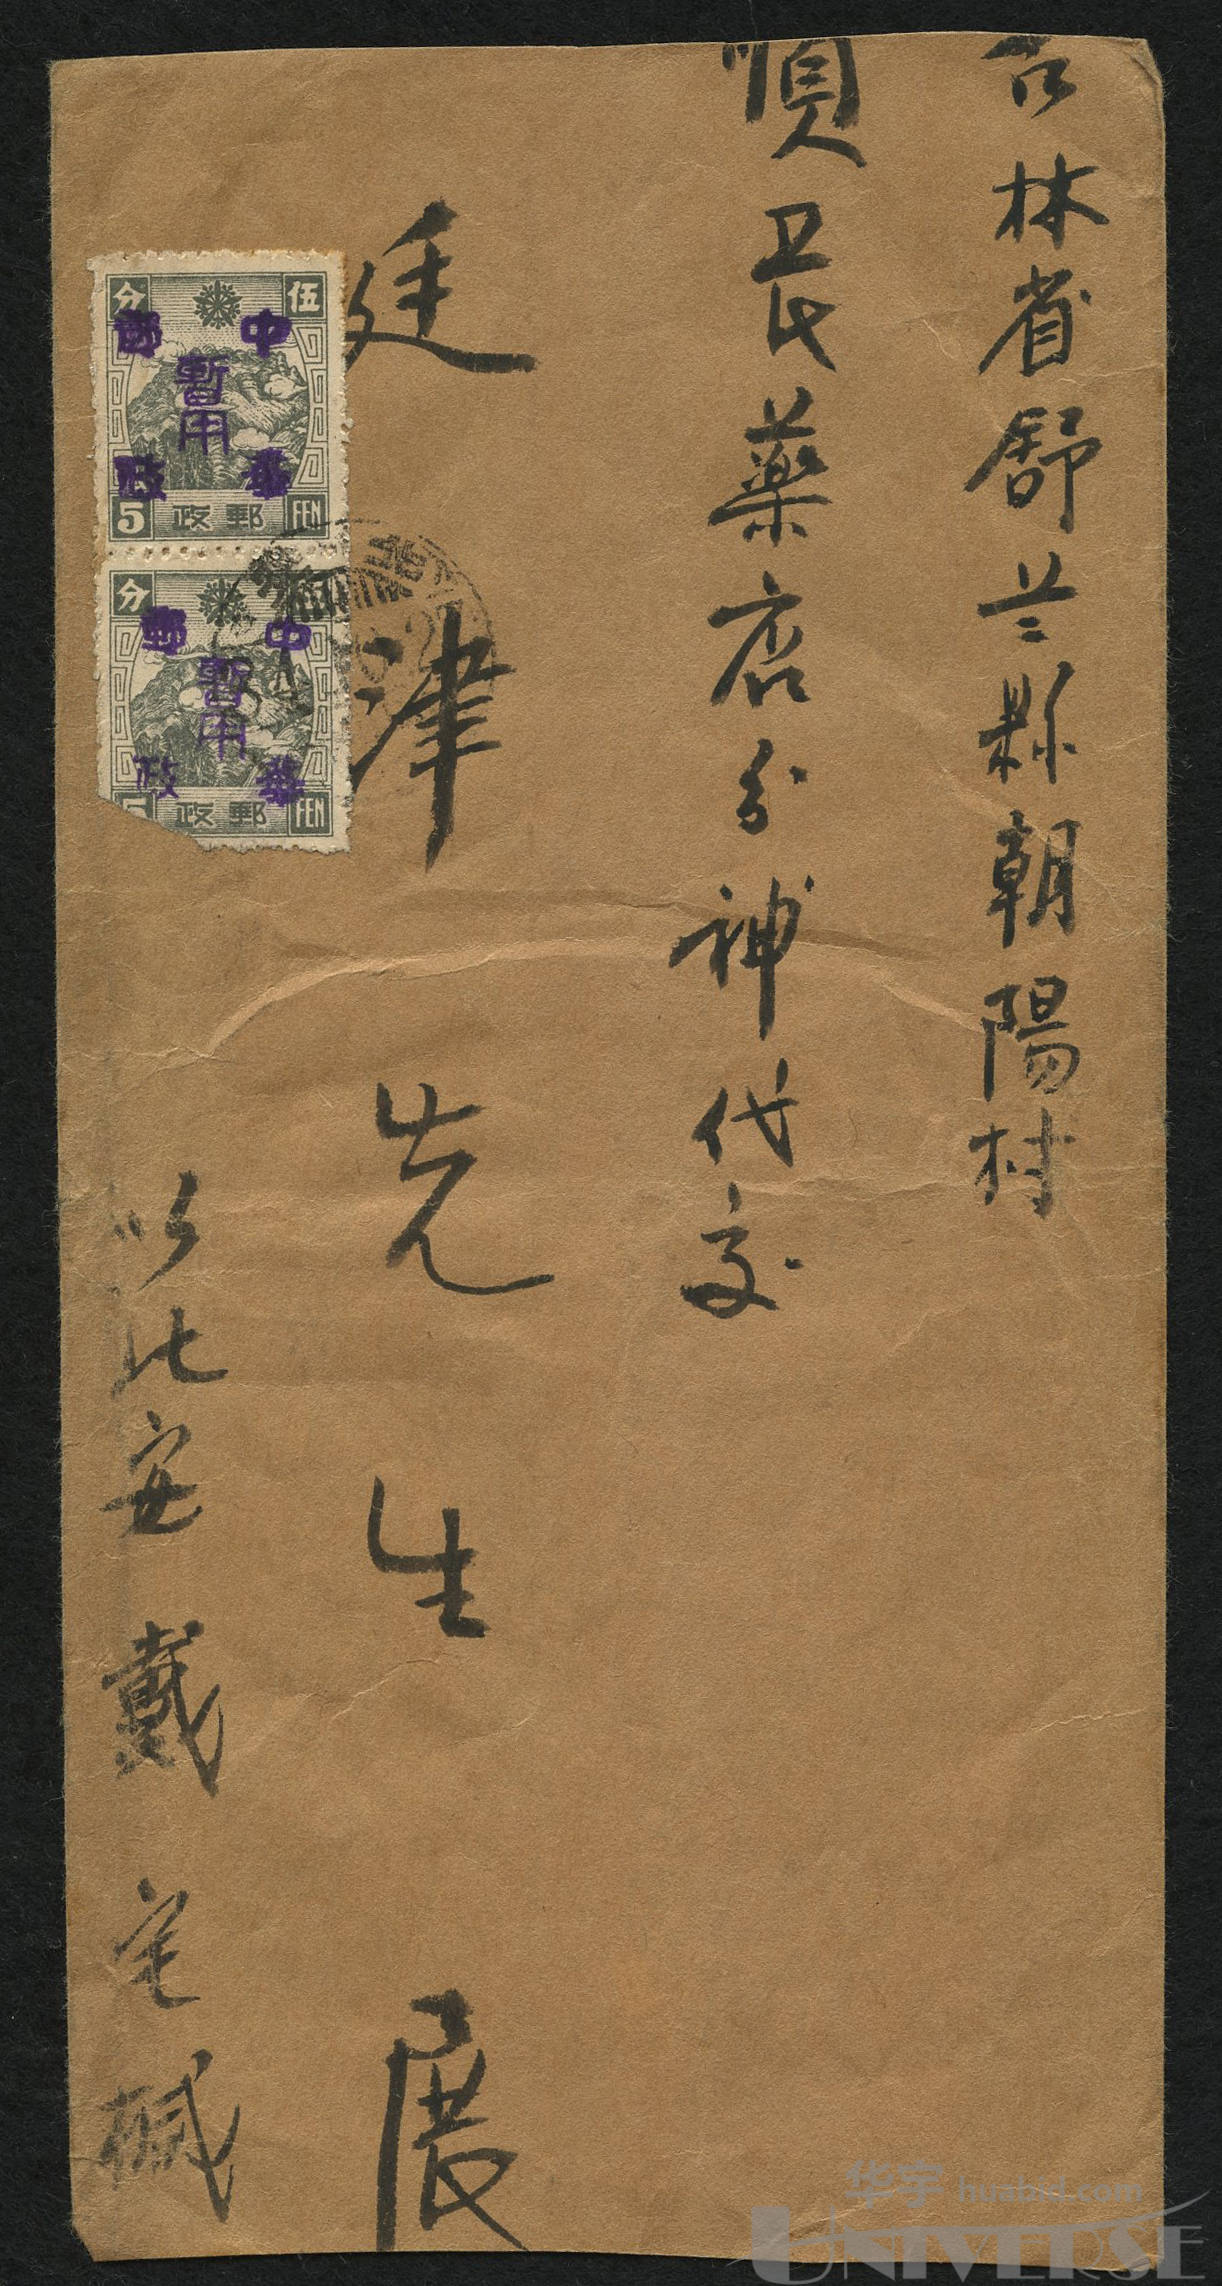 吉林省舒兰縣朝陽村
順民藥店分神代交
廷津先生展
以比安戴宅椷
分 伍
中華郵政
暫用
5 郵政 FEN
分
中華郵政
暫用
5 郵政 FEN
华宇 huabid.com
UNIVERSE